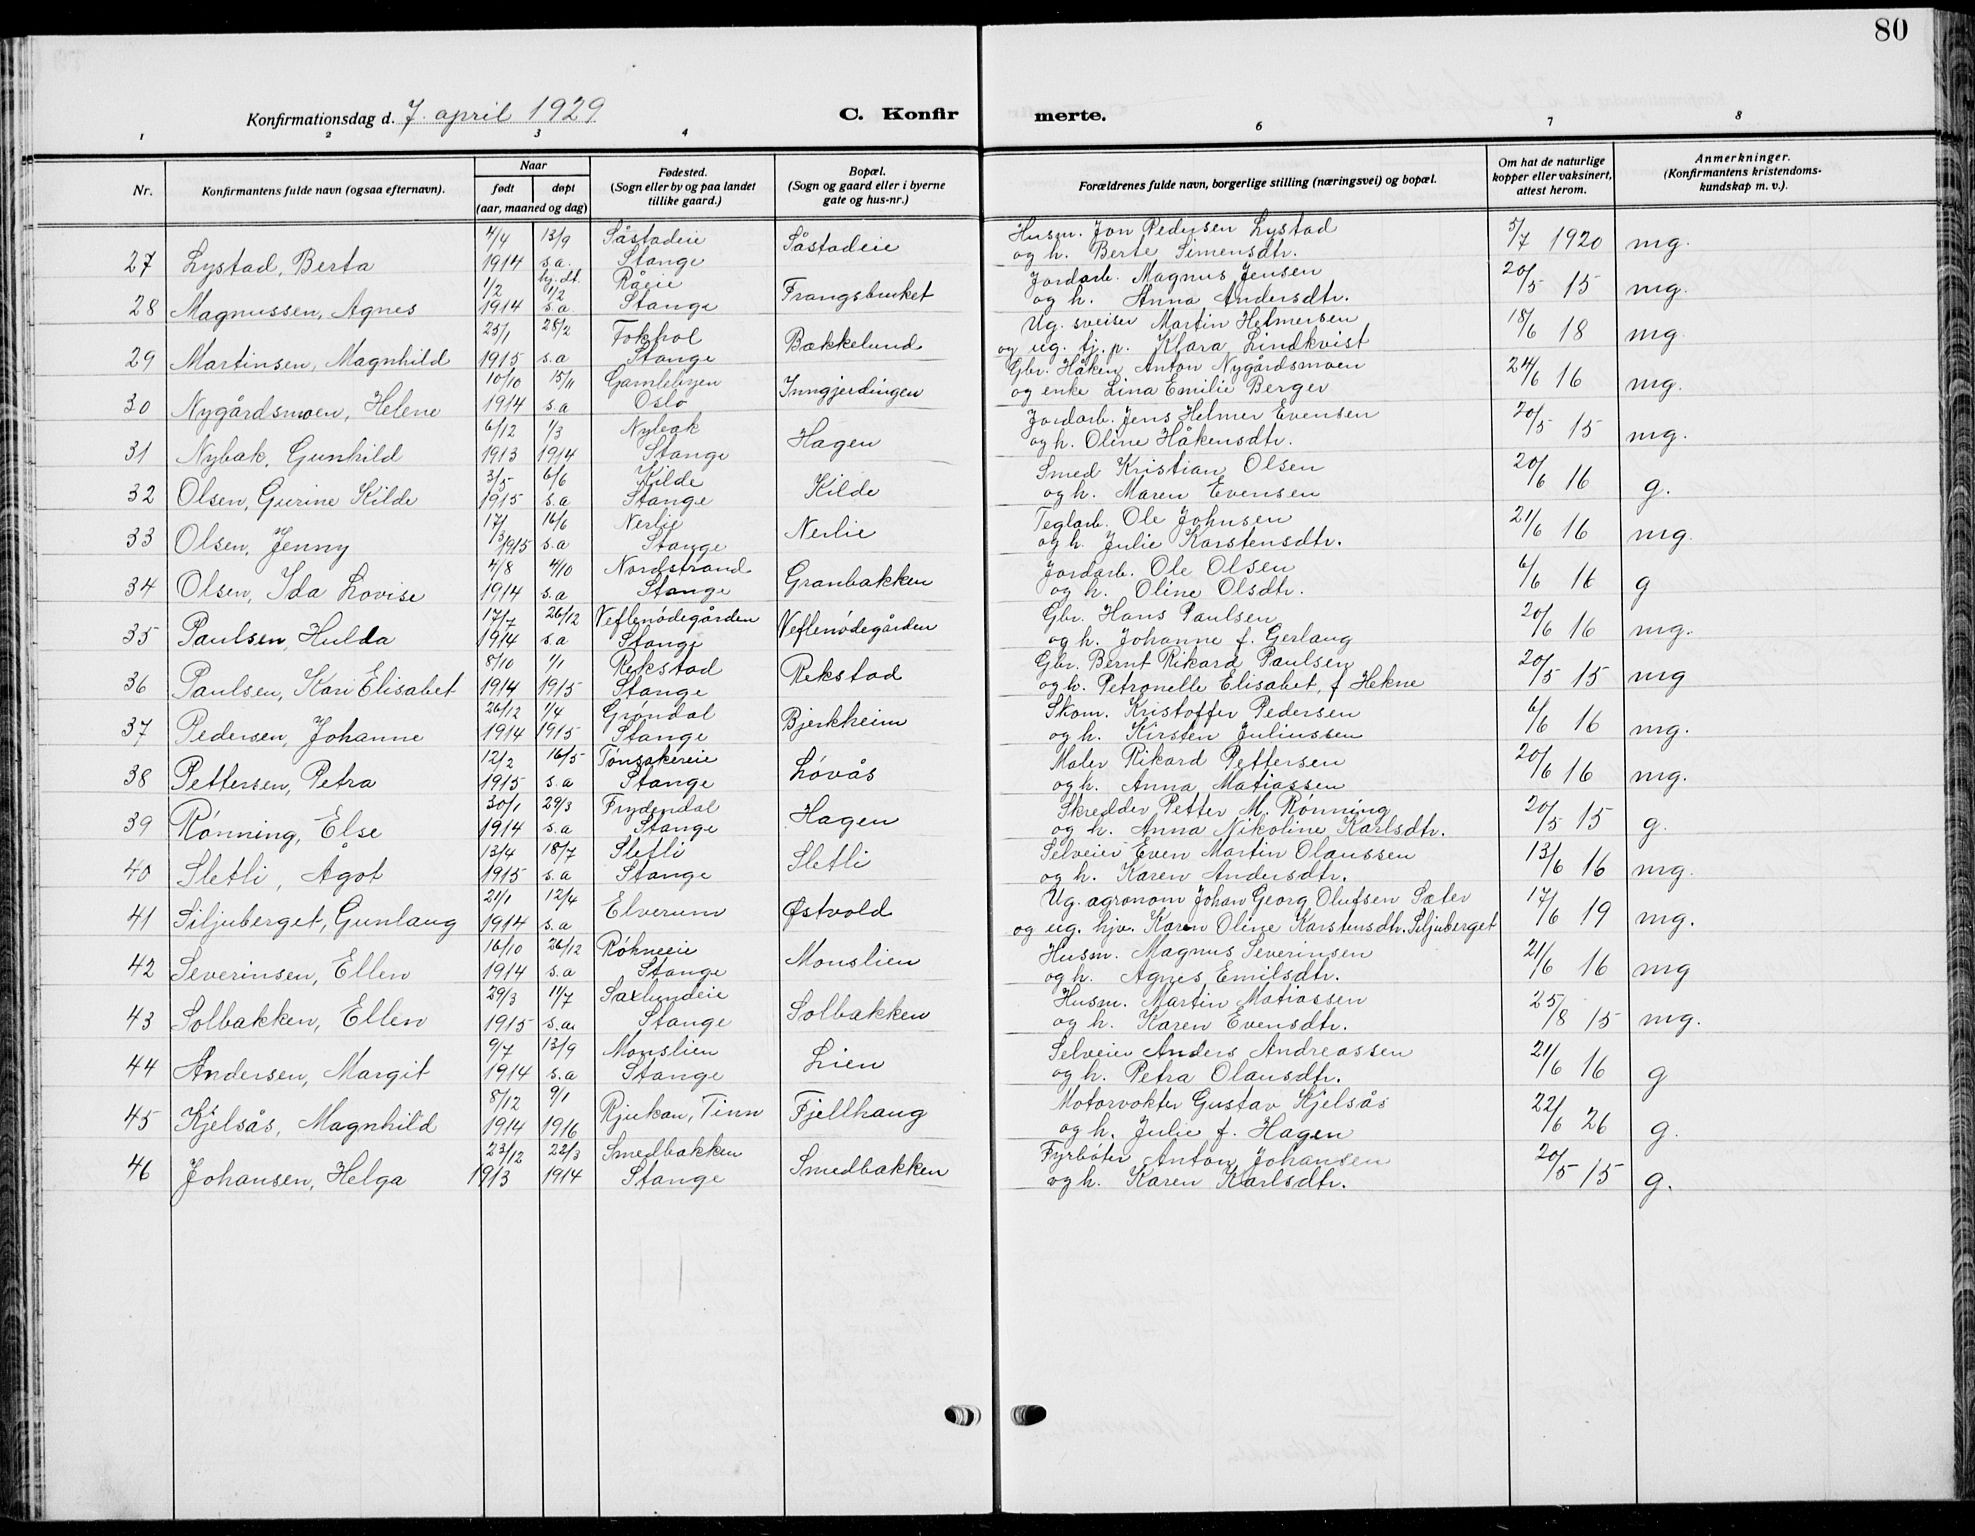 80
Konfirmationsdag d. 7. april 1929
C. Konfir merte.
1 2 3 4 6 7 8
Nr.
Konfirmantens fulde navn (ogsaa efternavn).
Naar
født døpt
(aar, maaned og dag)
Fødested.
(Sogn eller by og paa landet
tillike gaard.)
Bopæl.
(Sogn og gaard eller i byerne
gate og hus-nr.)
Forældrenes fulde navn, borgerlige stilling (næringsvei) og bopæl.
Om hat de naturlige
kopper eller vaksinert,
attest herom.
Anmerkninger.
(Konfirmantens kristendoms-
kundskap m. v.).
4/4 13/9 Såstadeie Såstadeie Husm. Jon Pedersen Lystad 5/7 1920 mg.
27 Lystad, Berta 1914 s.a. Stange og h. Berte Simensdtr.
1/2 hj.dt. 1/2 Råeie Frangsbruket Jordarb. Magnus Jensen 20/5 15 mg.
28 Magnussen, Agnes 1914 s.a Stange og h. Anna Andersdtr.
25/1 28/2 Fokhol Bækkelund Ug. sveiser Martin Helmersen 18/6 18 mg
29 Martinsen, Magnhild 1915 s.a Stange og ug. tj.p. Klara Lindkvist
10/10 15/11 Gamlebyen Inngjerdingen Gbr. Håken Anton Nygårdsmoen 24/6 16 mg.
30 Nygårdsmoen, Helene 1914 s.a Oslo og enke Lina Emilie Berger
6/12 1/3 Nybak Hagen Jordarb. Jens Helmer Evensen 20/5 15 mg.
31 Nybak, Gunhild 1913 1914 Stange og h. Oline Håkensdtr.
3/5 6/6 Kilde Kilde Smed Kristian Olsen 20/6 16 g.
32 Olsen, Gurine Kilde 1915 s.a Stange og h. Maren Evensen
17/3 16/6 Nerlie Nerlie Teglarb. Ole Johnsen 21/6 16 mg.
33 Olsen, Jenny 1915 s.a Stange og h. Julie Karstensdtr.
4/8 4/10 Nordstrand Granbakken Jordarb. Ole Olsen 6/6 16 g
34 Olsen, Ida Lovise 1914 s.a Stange og h. Oline Olsdtr.
17/7 26/12 Veflenødegården Veflenødegården Gbr. Hans Paulsen 20/6 16 mg.
35 Paulsen, Hulda 1914 s.a Stange og h. Johanne f. Gerlaug
8/10 1/1 Rekstad Rekstad Gbr. Bernt Rikard Paulsen 20/5 15 mg
36 Paulsen, Kari Elisabet 1914 1915 Stange og h. Petronelle Elisabet, f Hekne
26/12 1/4 Grøndal Bjerkheim Skom. Kristoffer Pedersen 6/6 16 mg.
37 Pedersen, Johanne 1914 1915 Stange og h. Kirsten Juliussen
12/2 16/5 Tønsakereie Løvås Maler Rikard Pettersen 20/6 16 mg.
38 Pettersen, Petra 1915 s.a Stange og h. Anna Matiassen
30/1 29/3 Frydendal Hagen Skredder Petter M. Rønning 20/5 15 g.
39 Rønning, Else 1914 s.a Stange og h. Anna Nikoline Karlsdtr.
13/4 18/7 Sletli Sletli Selveier Even Martin Olaussen 13/6 16 mg.
40 Sletli, Ågot 1915 s.a Stange og h. Karen Andersdtr.
21/1 12/4 Elverum Østvold Ug. agronom Johan Georg Olufsen Sæter 17/6 19 mg.
41 Siljuberget, Gunlaug 1914 s.a og ug. hjv. Karen Oline Karstensdtr. Siljuberget
16/10 26/12 Røkneeie Monslien Husm. Magnus Severinsen 21/6 16 mg
42 Severinsen, Ellen 1914 s.a Stange og h. Agnes Emilsdtr.
29/3 11/7 Saxlundeie Solbakken Husm. Martin Matiassen 25/8 15 mg.
43 Solbakken, Ellen 1915 s.a Stange og h. Karen Evensdtr.
9/7 13/9 Monslien Lien Selveier Anders Andreassen 21/6 16 g
44 Andersen, Margit 1914 s.a Stange og h. Petra Olausdtr.
8/12 9/1 Rjukan, Tinn Fjellhaug Motorvokter Gustav Kjelsås 22/6 26 g.
45 Kjelsås, Magnhild 1914 1916 og h. Julie f. Hagen
23/12 22/3 Smedbakken Smedbakken Fyrbøter Anton Johansen 20/5 15 g.
46 Johansen, Helga 1913 1914 Stange og h. Karen Karlsdtr.